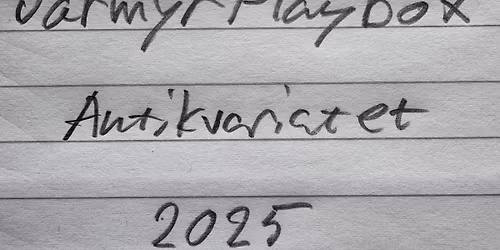 Varmyr Playbox
Antikvariatet
2025